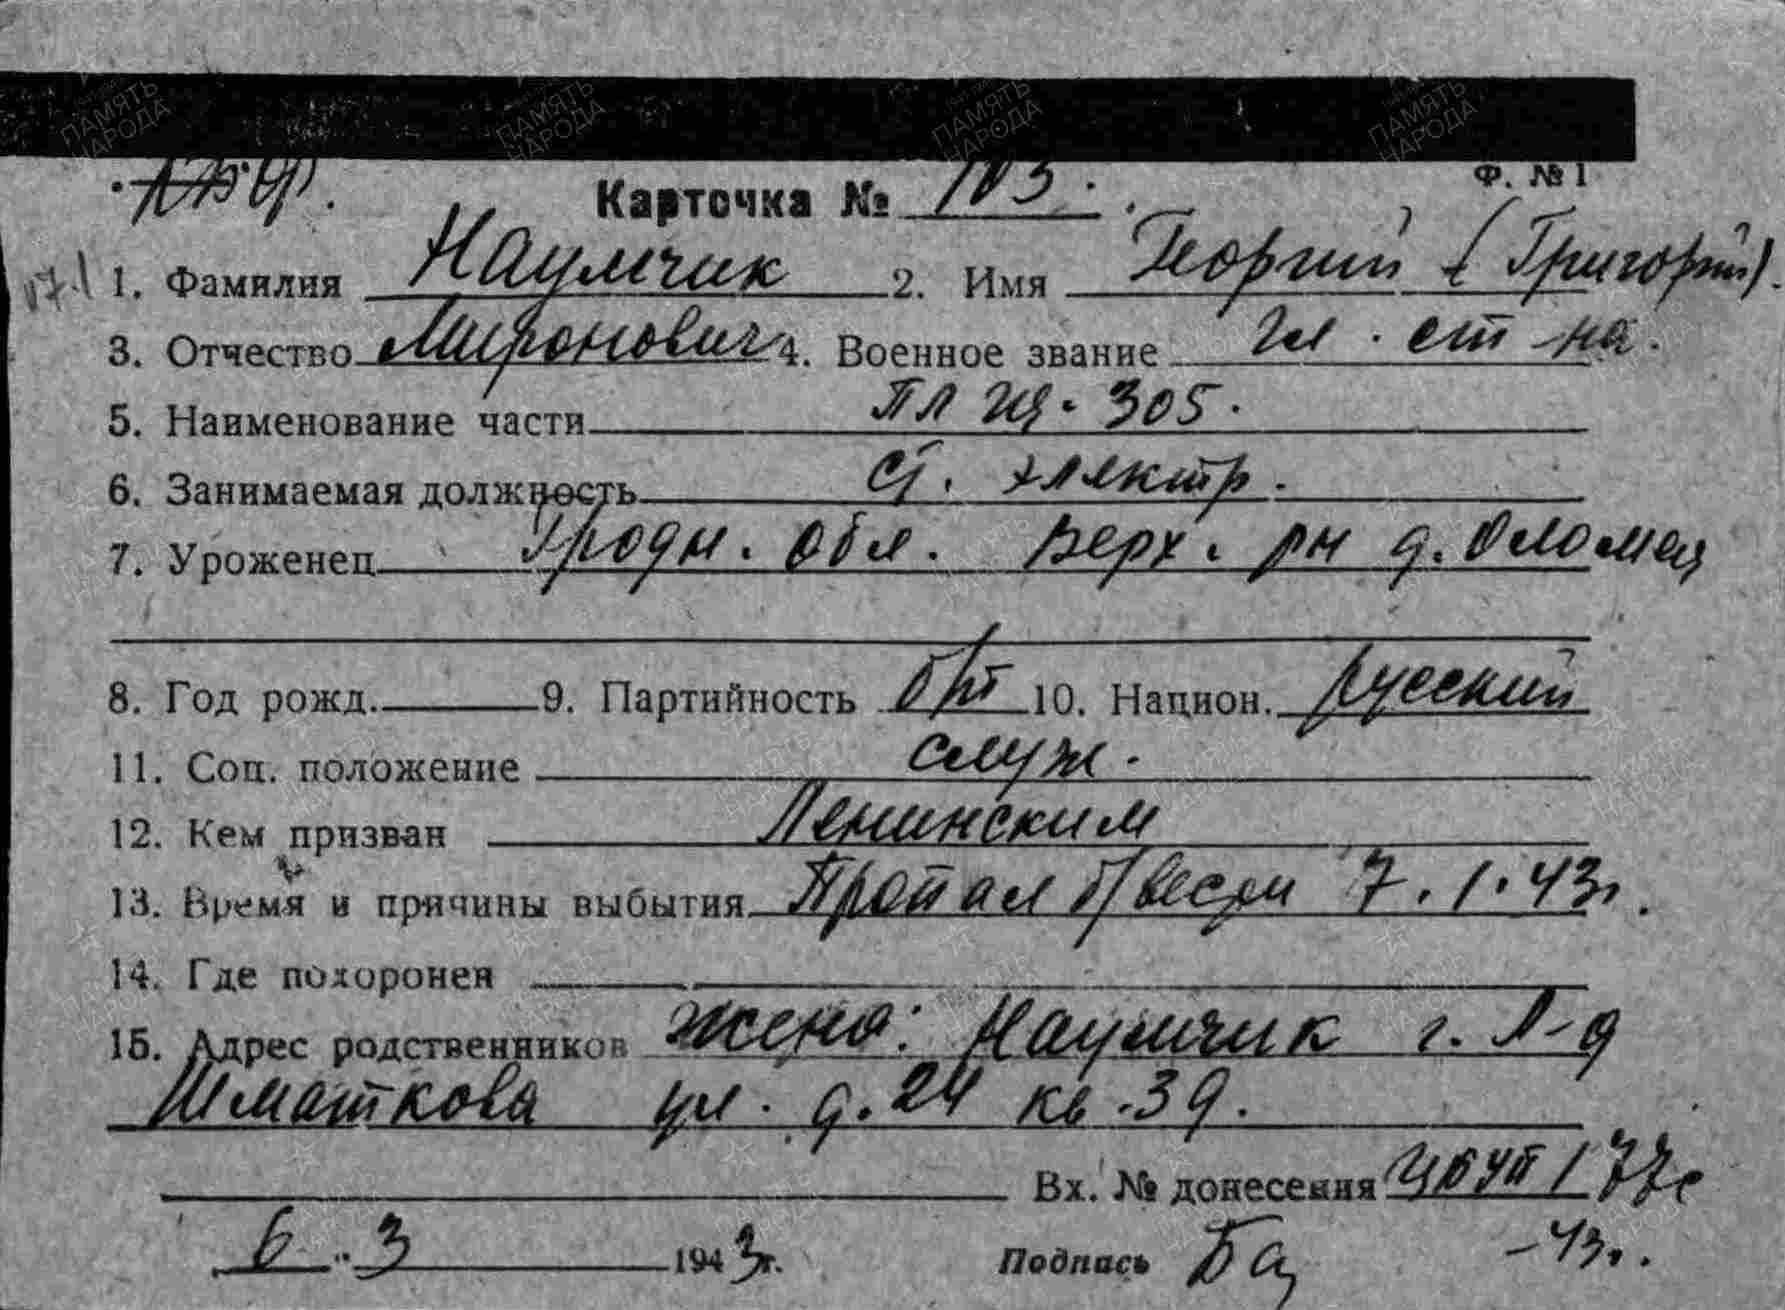 КБФ.
Карточка № 103. Ф. № 1
1. Фамилия Наумчик 2. Имя Георгий (Григорий).
3. Отчество Миронович 4. Военное звание гл. ст-на.
5. Наименование части ПЛ Щ-305.
6. Занимаемая должность ст. электр.
7. Уроженец Гродн. обл. Верх. рн д. Оломея
8. Год рожд. 9. Партийность б/п 10. Национ. русский
11. Соц. положение служ.
12. Кем призван Ленинским
13. Время и причины выбытия Пропал б/вести 7.1.43г.
14. Где похоронен
15. Адрес родственников Жена: Наумчик г. Л-д
Шматкова ул. д. 24 кв. 39.
Вх. № донесения ЦБУП 177с
6.. 3 1943г. Подпись Ба -43г.
ПАМЯТЬ НАРОДА